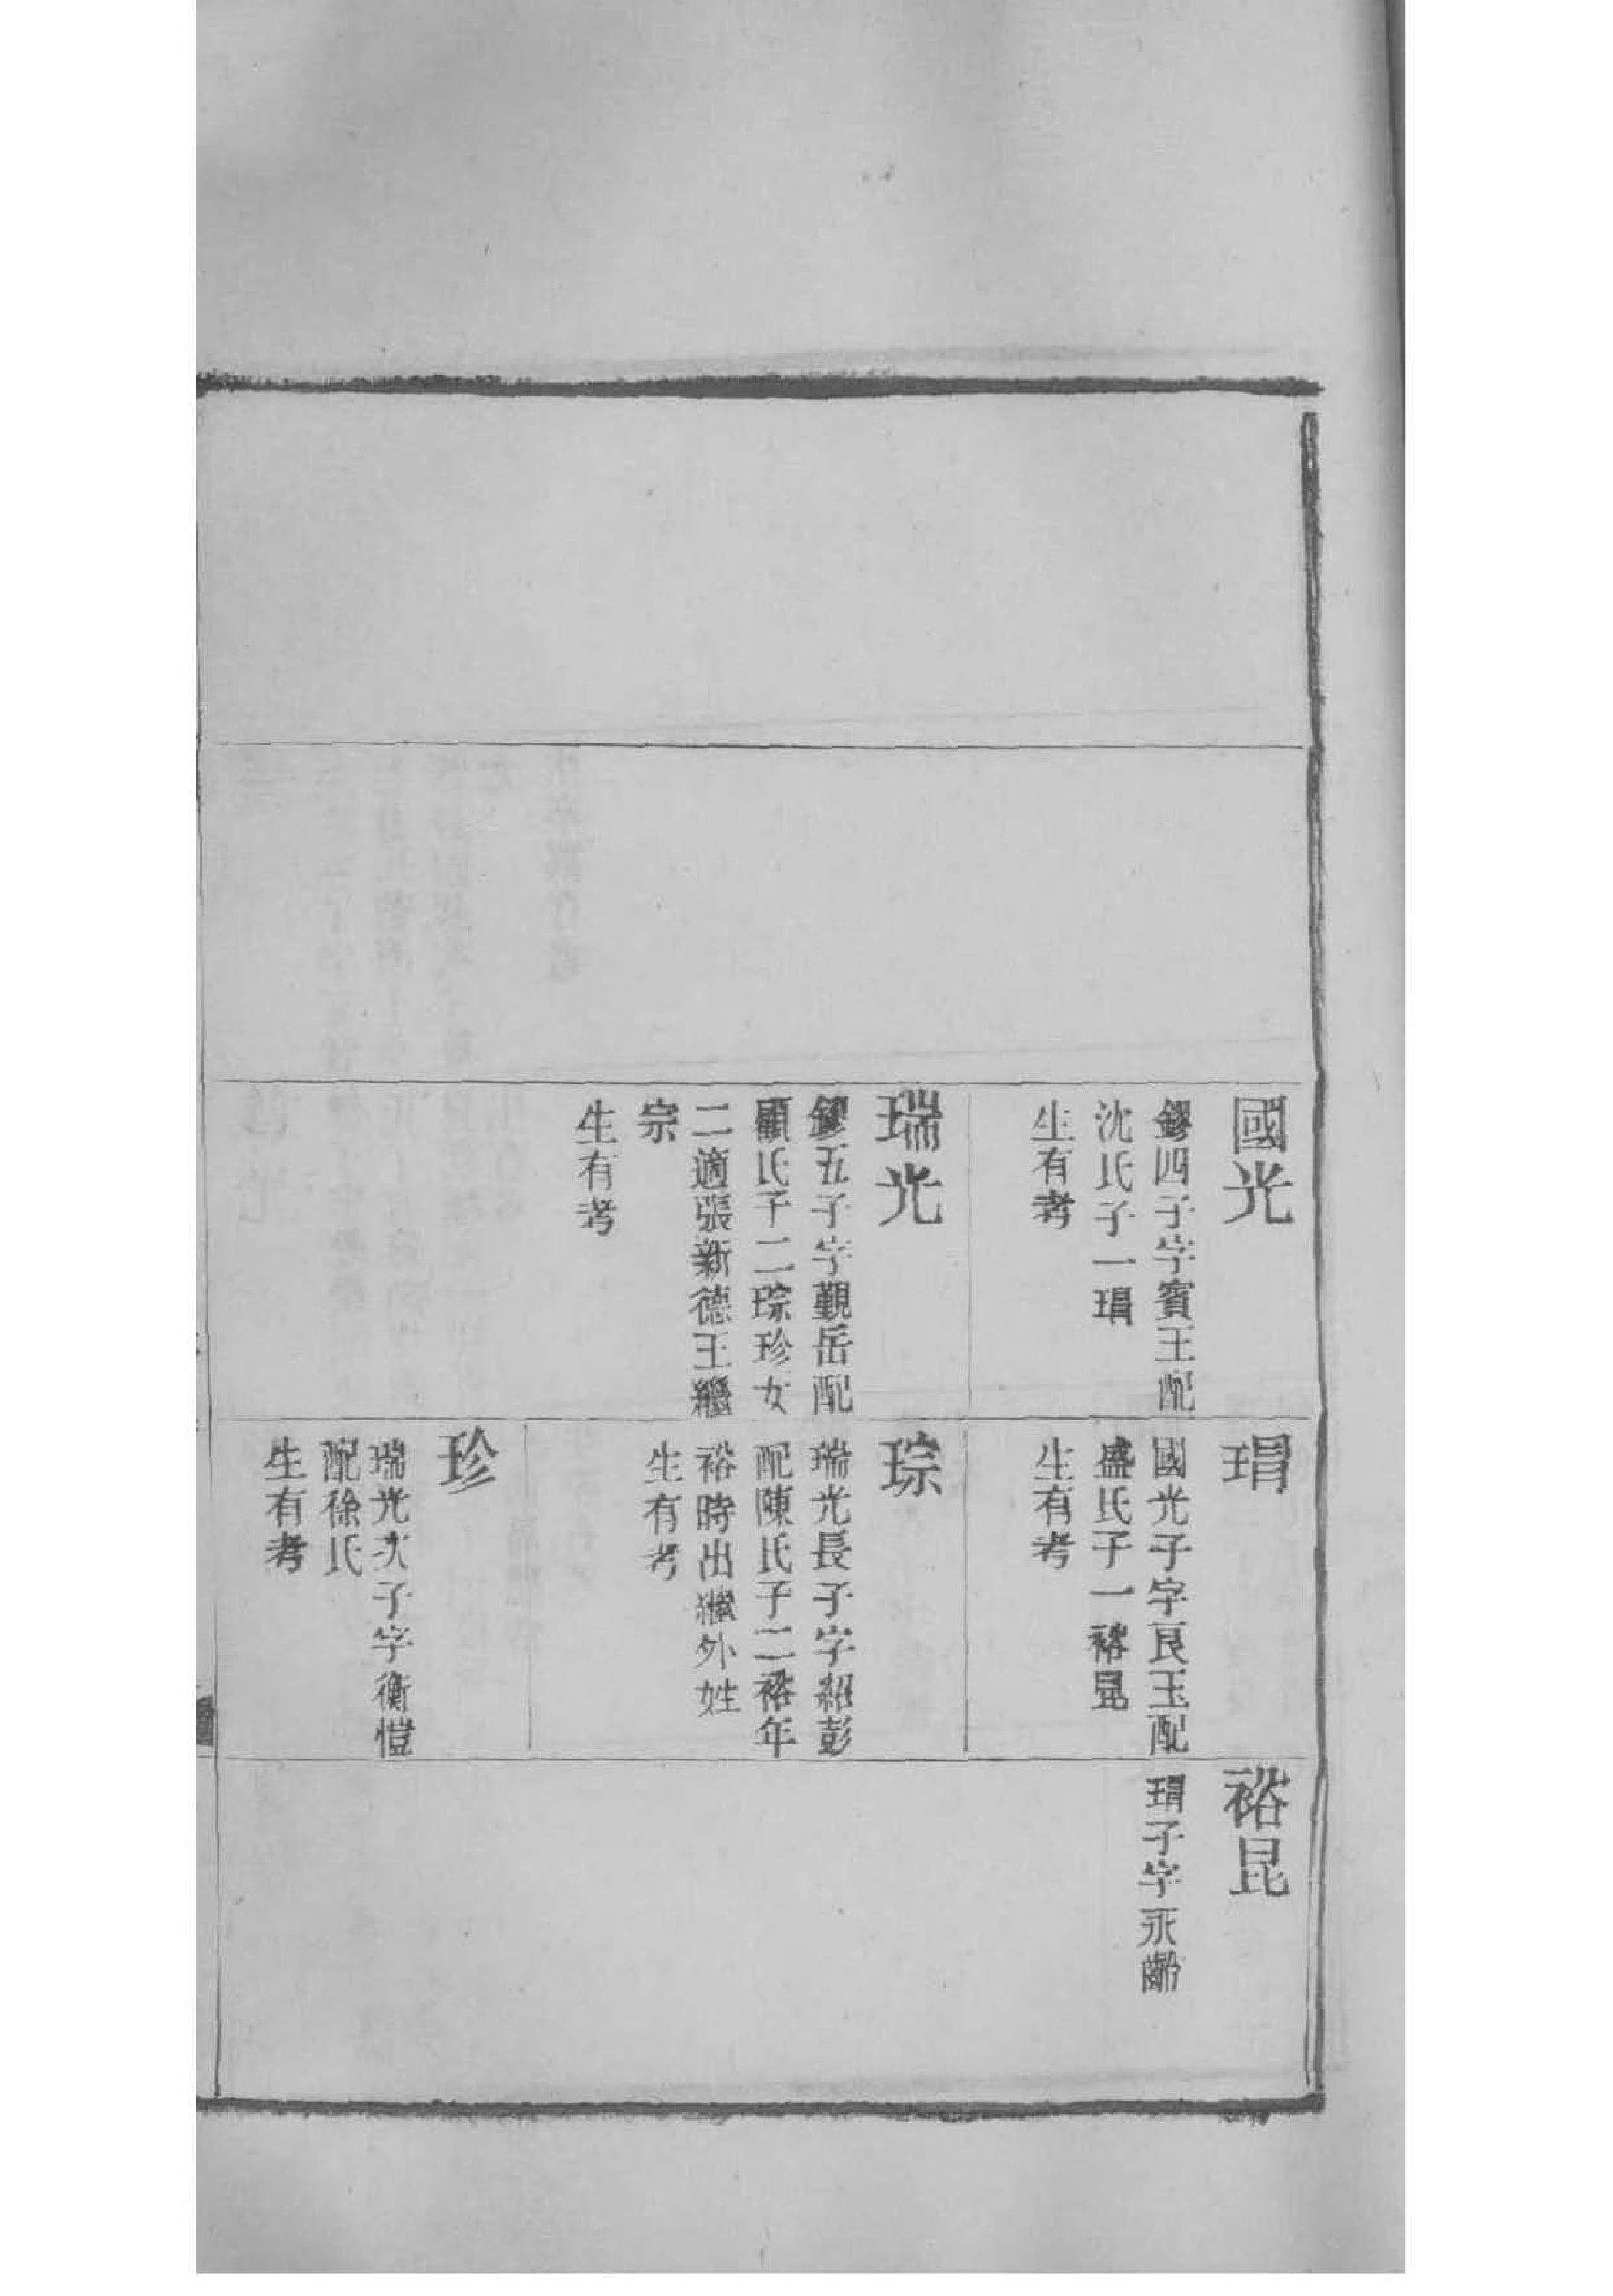 國光
鏐四子字賓王配
沈氏子一琄
生有考
瑞光
鏐五子字覲岳配
顧氏子二琮珍女
二適張新德王繼
宗
生有考
琄
國光子字良玉配
盛氏子一裕昆
生有考
琮
瑞光長子字紹彭
配陳氏子二裕年
裕時出繼外姓
生有考
珍
瑞光次子字衡愷
配徐氏
生有考
裕昆
琄子字永齡